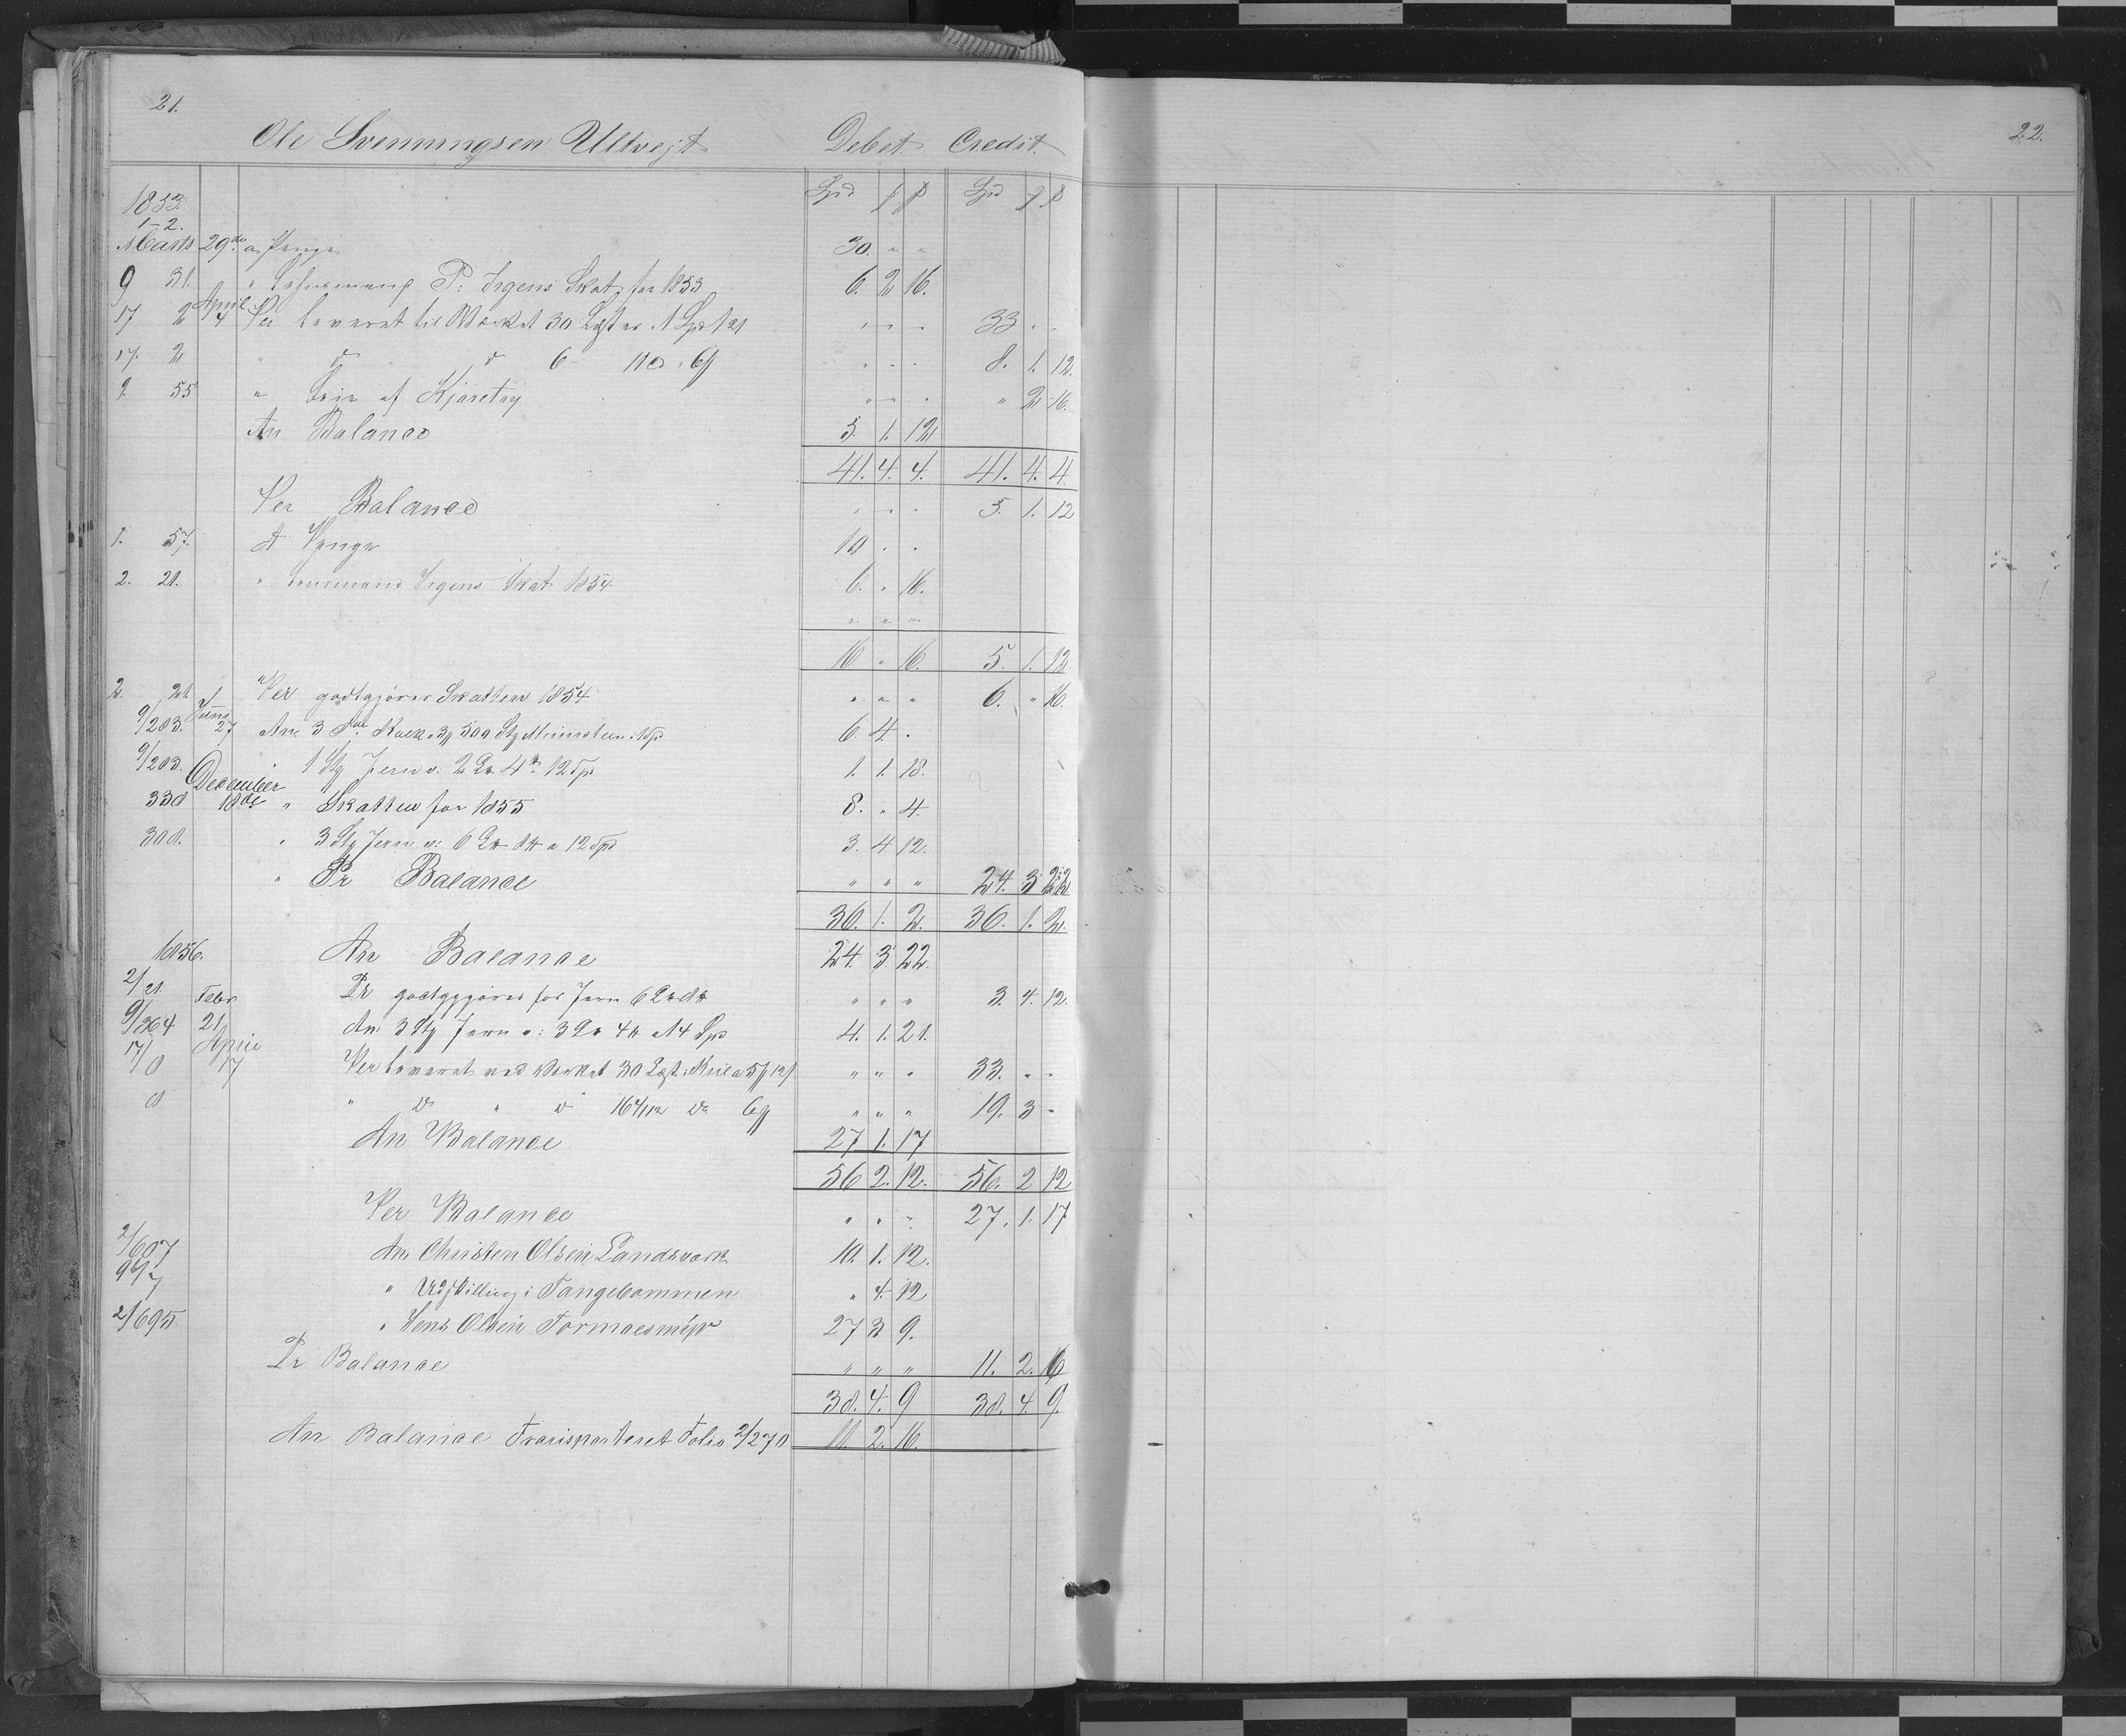 21.
Ole Svenningsen Ultvejt Debet Credit.
Spd Spd
1853.
1-2.
Marts 29de a Penge 30. " "
9 31. " Lehnsmand P: Irgens Skat for 1853 6. 2 16.
17 2 April 4 Per leveret til Værket 30 Læster 33 " "
17. 2 " d d 6 8. 1. 12.
9. 55 " Leie af Kjøretøy " 2 16.
An Balance 5. 1. 12
41. 4. 4. 41. 4. 4
Per Balance 5. 1. 12
1. 57. A Penge 10 " "
2. 21. " Lensmand Irgens Skat 1854 6. " 16.
" " "
16 " 16. 5. 1. 12
2. 21 Per godtgjøres Skatten 1854 " " " 6. " 16.
9/203. Juni 27 An 3 6. 4. "
9/203. 1 Stg Jern v. 2 1. 1. 18.
338 December 18de " Skatten for 1855 8. " 4.
308. " 3 Stg Jern v: 6 a 12 Spd 3. 4 12.
" Pr Balance " " " 24. 3 22
36. 1. 2. 36. 1. 2.
1856. An Balance 24. 3 22.
2/21 Febr Pr godtgjøres for Jern 6 " " " 3. 4. 12.
9/364 21 An 3 Stg Jern v: 3 a 14 Spd 4. 1. 21.
17/8 April 7 Per leveret ved Værket 30 Læst " " " 33. " "
8 " d " d " " " 19. 3 "
An Balance 27 1. 17
56 2. 12. 56. 2 12
Per Balance " " " 27. 1. 17
2/607 An Christen Olsen Landsværk 10. 1. 12.
997 " Udskilling i Tangelommen " 4. 12
2/695 " Jens Olsen Tormoesmér 27 3 9.
Pr Balance " " " 11. 2. 16
38. 4. 9 38. 4. 9.
An Balance Transporteret Folio 2/270 11. 2. 16.
22.